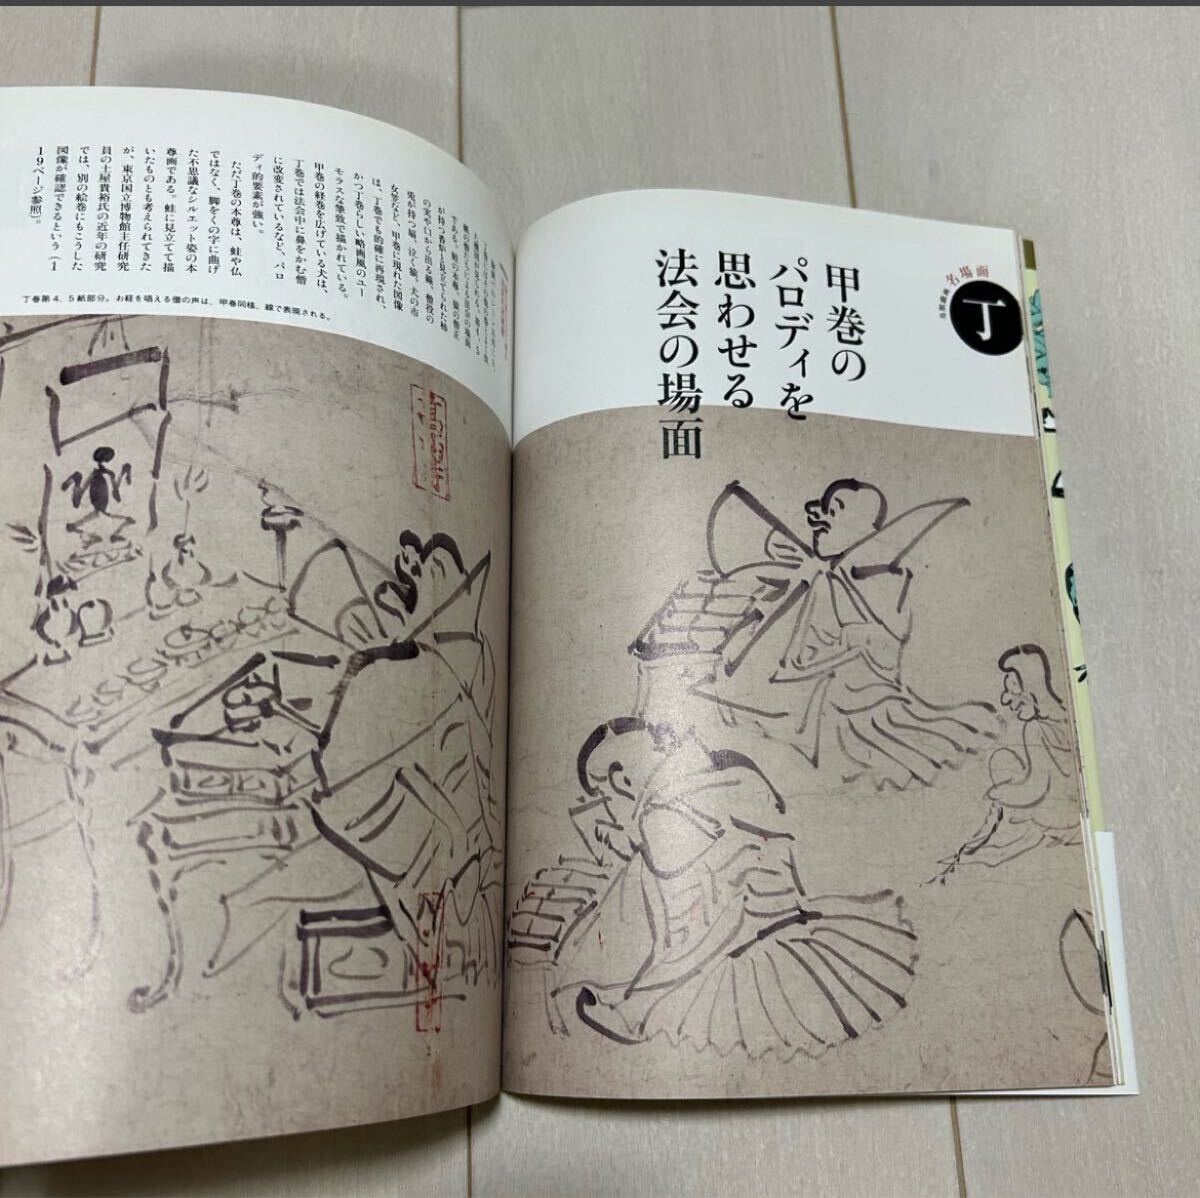 名場面
丁
甲巻の
パロディを
思わせる
法会の場面
である。蛙の本尊、猿の僧正
が持つ香炉と見立てられた柿
の実や口から出る線、僧役の
兎が持つ塙、泣く猿、犬の市
女笠など、甲巻に現れた図像
は、丁巻でも的確に再現され、
かつ丁巻らしい略画風のユー
モラスな筆致で描かれている。
甲巻の経巻を広げている犬は、
丁巻では法会中に鼻をかむ僧
に改変されているなど、パロ
ディ的要素が強い。
ただ丁巻の本尊は、蛙や仏
ではなく、脚をくの字に曲げ
た不思議なシルエット姿の本
尊画である。蛙に見立てて描
いたものとも考えられてきた
が、東京国立博物館主任研究
員の土屋貴裕氏の近年の研究
では、別の絵巻にもこうした
図像が確認できるという（1
19ページ参照）。
丁巻第4、5紙部分。お経を唱える僧の声は、甲巻同様、線で表現される。